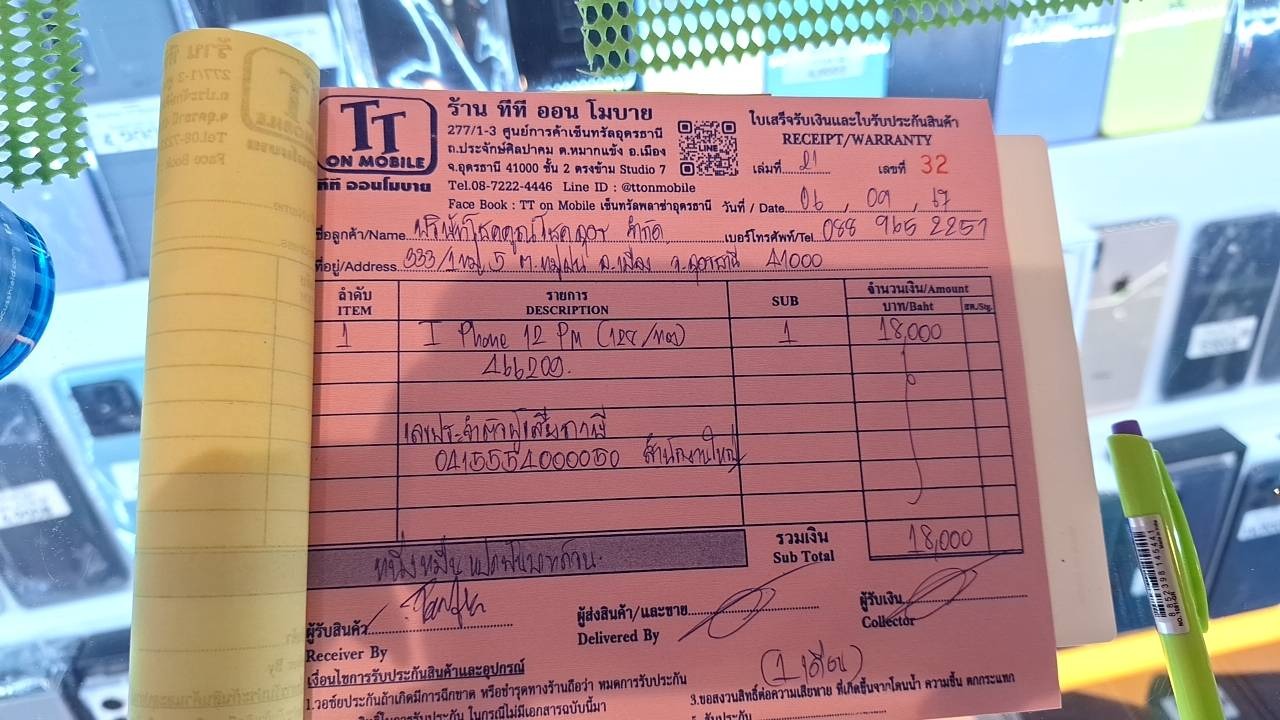 TT
ON MOBILE
ทีที ออนโมบาย
ร้าน ทีที ออน โมบาย
277/1-3 ศูนย์การค้าเซ็นทรัลอุดรธานี
ถ.ประจักษ์ศิลปาคม ต.หมากแข้ง อ.เมือง
จ.อุดรธานี 41000 ชั้น 2 ตรงข้าม Studio 7
Tel.08-7222-4446 Line ID : @ttonmobile
Face Book : TT on Mobile เซ็นทรัลพลาซ่าอุดรธานี
LINE
ใบเสร็จรับเงินและใบรับประกันสินค้า
RECEIPT/WARRANTY
เล่มที่ 21 เลขที่ 32
วันที่ / Date 06 , 09 , 67
ชื่อลูกค้า/Name บริษัท จำกัด เบอร์โทรศัพท์/Tel 088 965 2251
ที่อยู่/Address 333/1 หมู่ 5 ต. อ.เมือง จ.อุดรธานี 41000
ลำดับ รายการ SUB จำนวนเงิน/Amount
ITEM DESCRIPTION บาท/Baht สต./Stg.
1 I Phone 12 Pm (128/ทอง) 1 18,000
466209.
เลขประจำตัวผู้เสียภาษี
0415554000050 สำนักงานใหญ่
รวมเงิน 18,000
Sub Total
หนึ่งหมื่นแปดพันบาทถ้วน
ผู้รับสินค้า ผู้ส่งสินค้า/และขาย ผู้รับเงิน
Receiver By Delivered By Collector
(1 เดือน)
เงื่อนไขการรับประกันสินค้าและอุปกรณ์
1.วอยประกันถ้าเกิดมีการฉีกขาด หรือชำรุดทางร้านถือว่า หมดการรับประกัน
3.ขอสงวนสิทธิ์ต่อความเสียหาย ที่เกิดขึ้นจากโดนน้ำ ความชื้น ตกกระแทก
ในการรับประกัน ในกรณีไม่มีเอกสารฉบับนี้มา